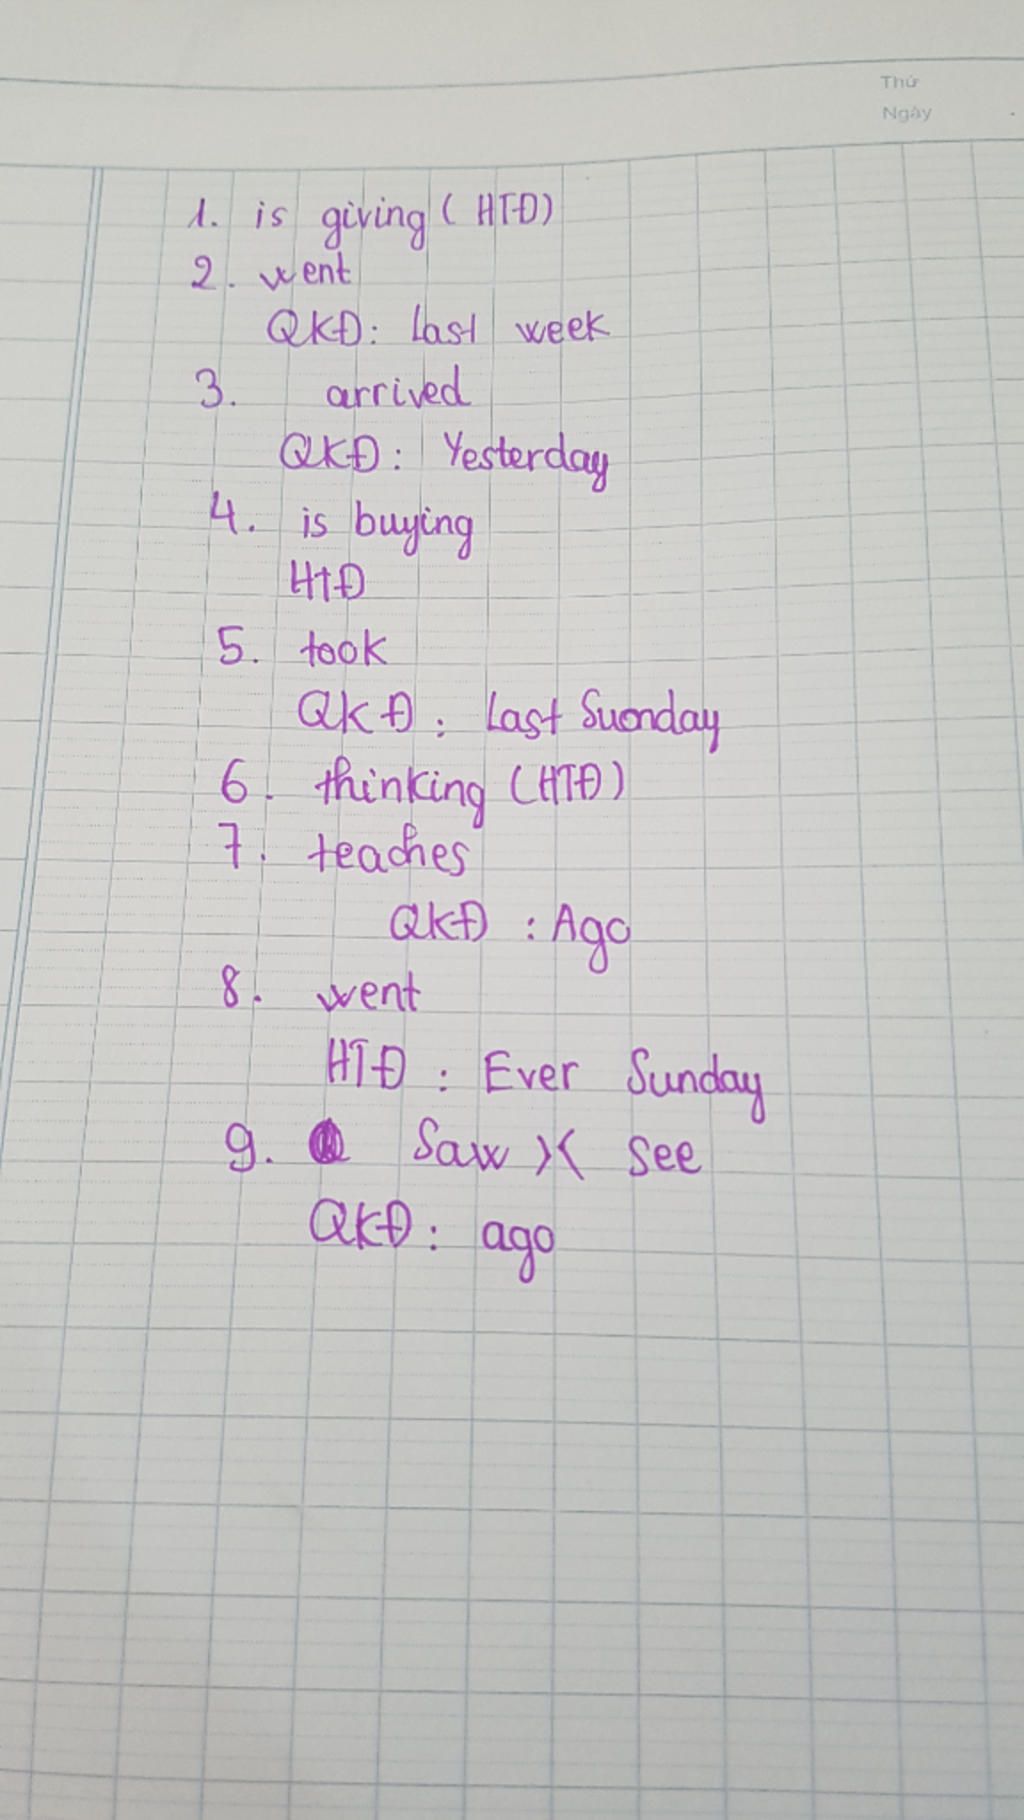 Thứ
Ngày
1. is giving (HTĐ)
2. went
QKĐ: Last week
3. arrived
QKĐ: Yesterday
4. is buying
HTĐ
5. took
QKĐ: Last Suonday
6. thinking (HTĐ)
7. teaches
QKĐ: Ago
8. went
HTĐ: Ever Sunday
9. Saw >< see
QKĐ: ago